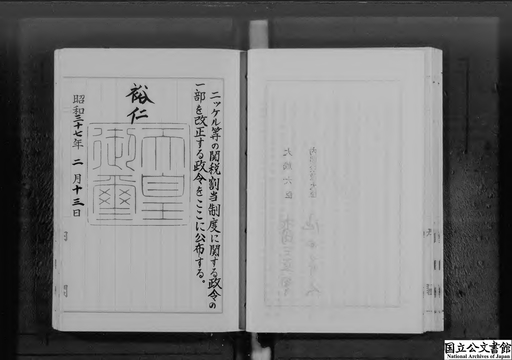 ニッケル等の関税割当制度に関する政令の
一部を改正する政令をここに公布する。
裕仁
天皇
御璽
昭和三十七年 二月十三日
国立公文書館
National Archives of Japan